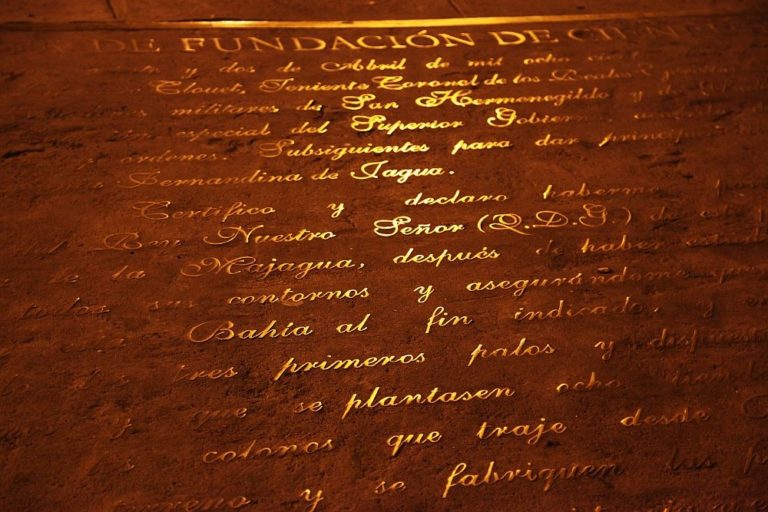 DE FUNDACIÓN DE CIENFU
y dos de Abril de mil ocho
Clouet, Teniente Coronel de los Reales
militares de San Hermenegildo y de
especial del Superior Gobierno
órdenes. Subsiguientes para dar principio
Fernandina de Jagua.
Certifico y declaro haberme
Rey Nuestro Señor (Q.D.G.) de
de la Majagua, después de haber
todos sus contornos y asegurándome que
Bahía al fin indicado, y
tres primeros palos y dispuesto
y que se plantasen ocho
colonos que traje desde
terreno y se fabriquen las